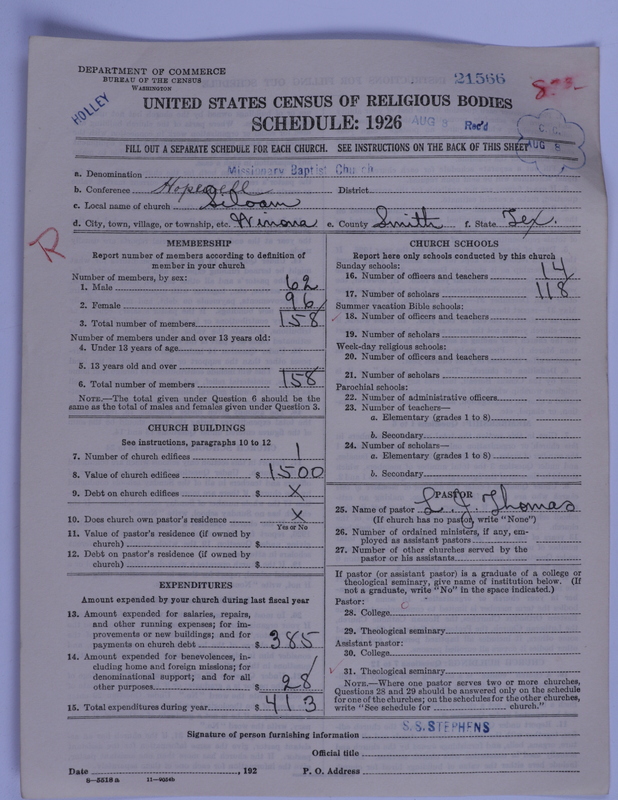 DEPARTMENT OF COMMERCE
BUREAU OF THE CENSUS
WASHINGTON
21566
HOLLEY
UNITED STATES CENSUS OF RELIGIOUS BODIES
SCHEDULE: 1926
AUG 8 Rec'd
AUG 8
FILL OUT A SEPARATE SCHEDULE FOR EACH CHURCH. SEE INSTRUCTIONS ON THE BACK OF THIS SHEET
a. Denomination Missionary Baptist Church
b. Conference Hopewell District
c. Local name of church Siloam
d. City, town, village, or township, etc. Winona e. County Smith f. State Tex.
R
MEMBERSHIP
Report number of members according to definition of
member in your church
Number of members, by sex:
1. Male 62
2. Female 96
3. Total number of members 158
Number of members under and over 13 years old:
4. Under 13 years of age
5. 13 years old and over
6. Total number of members 158
NOTE.—The total given under Question 6 should be the
same as the total of males and females given under Question 3.
CHURCH BUILDINGS
See instructions, paragraphs 10 to 12
7. Number of church edifices 1
8. Value of church edifices $ 1500
9. Debt on church edifices $ X
10. Does church own pastor's residence X
Yes or No
11. Value of pastor's residence (if owned by
church) $
12. Debt on pastor's residence (if owned by
church) $
EXPENDITURES
Amount expended by your church during last fiscal year
13. Amount expended for salaries, repairs,
and other running expenses; for im-
provements or new buildings; and for
payments on church debt $ 385
14. Amount expended for benevolences, in-
cluding home and foreign missions; for
denominational support; and for all
other purposes $ 28
15. Total expenditures during year $ 413
CHURCH SCHOOLS
Report here only schools conducted by this church
Sunday schools:
16. Number of officers and teachers 14
17. Number of scholars 118
Summer vacation Bible schools:
18. Number of officers and teachers
19. Number of scholars
Week-day religious schools:
20. Number of officers and teachers
21. Number of scholars
Parochial schools:
22. Number of administrative officers
23. Number of teachers—
a. Elementary (grades 1 to 8)
b. Secondary
24. Number of scholars—
a. Elementary (grades 1 to 8)
b. Secondary
PASTOR
25. Name of pastor L. J. Thomas
(If church has no pastor, write "None")
26. Number of ordained ministers, if any, em-
ployed as assistant pastors
27. Number of other churches served by the
pastor or his assistants
If pastor (or assistant pastor) is a graduate of a college or
theological seminary, give name of institution below. (If
not a graduate, write "No" in the space indicated.)
Pastor:
28. College
29. Theological seminary
Assistant pastor:
30. College
31. Theological seminary
NOTE.—Where one pastor serves two or more churches,
Questions 28 and 29 should be answered only on the schedule
for one of the churches; on the schedules for the other churches,
write "See schedule for church."
Signature of person furnishing information S.S. STEPHENS
Official title
Date , 192 P. O. Address
8—5518 a 11—9054b